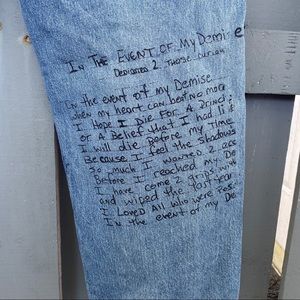 In THE EVENT OF My Demise
DEDICATED 2 THOSE CURIOUS
In the event of my Demise
when my heart can beat no more
I Hope I Die For A Principle
or A Belief that I had 4
I will die Before my time
Because I feel the shadow's
so much I wanted 2 acc
Before I reached my De
I have come 2 grips with
and wiped the last tear
I Loved All who were Pos
In the event of my De